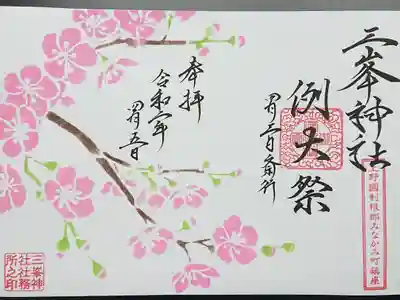 三峯神社
野國利根郡みなかみ町鎮座
例大祭
四月三日斎行
奉拝
令和
四月五日
三峯神
社社務
所之印